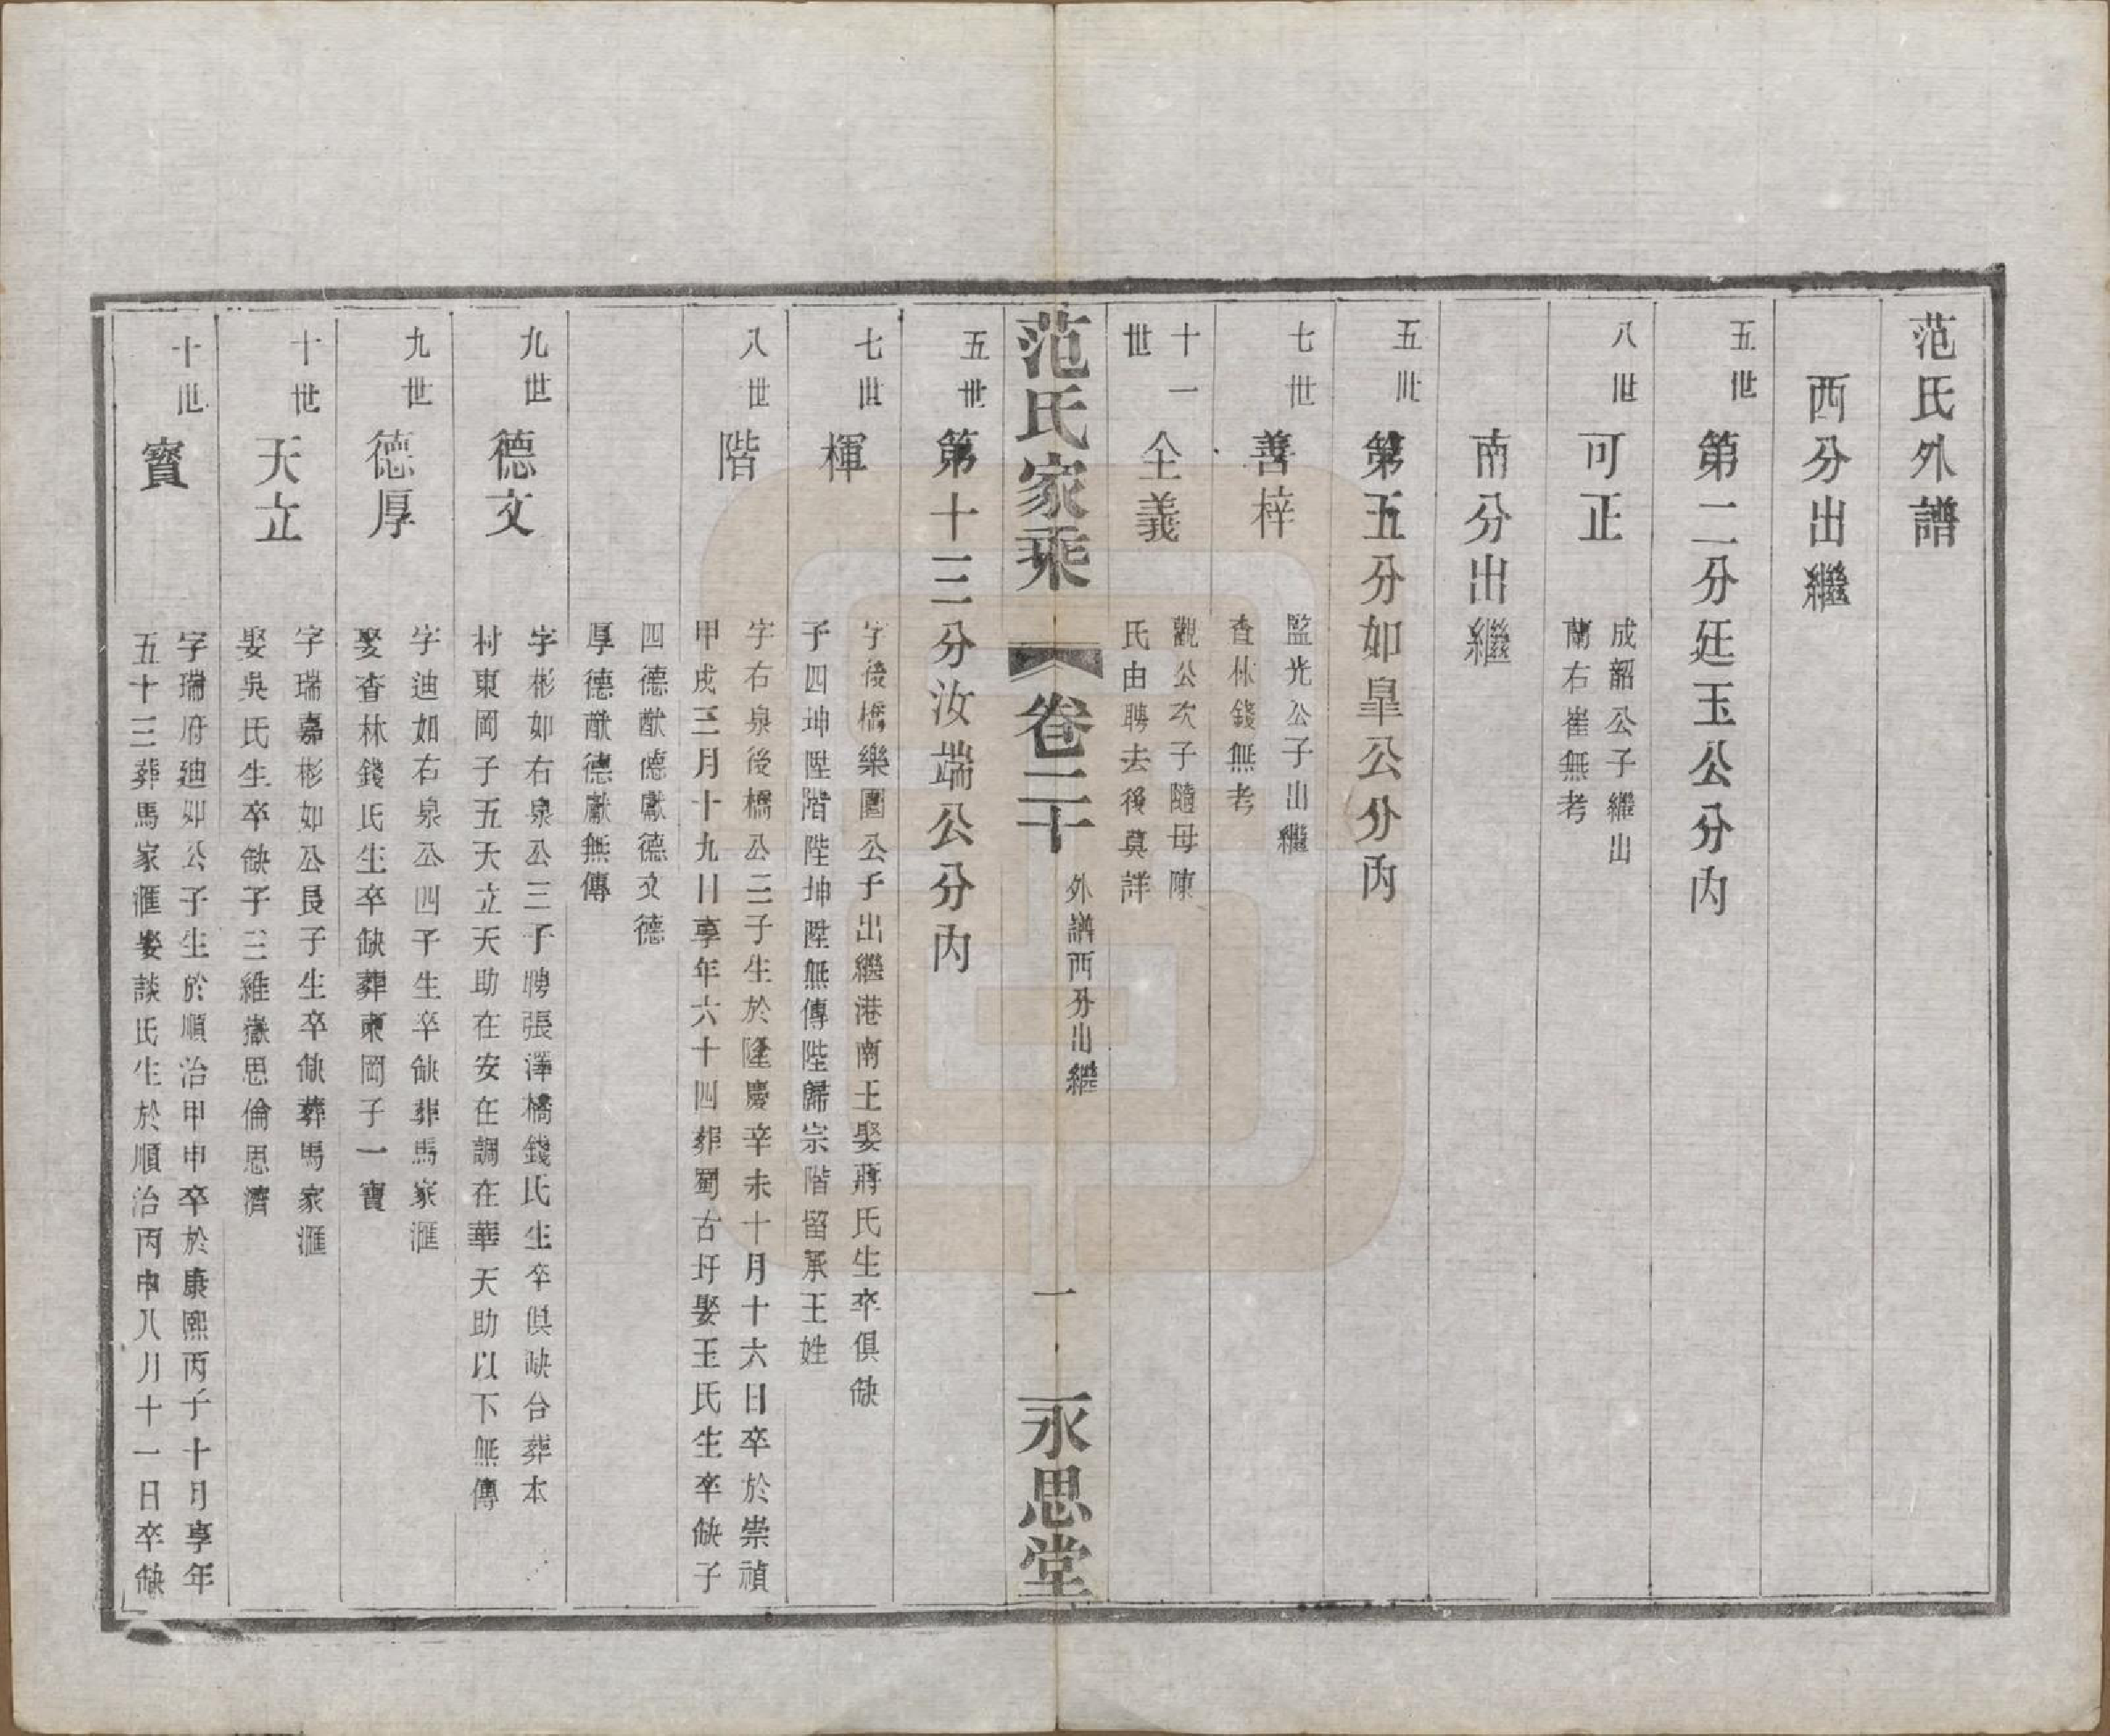 范氏外譜
西分出繼
五世
第二分廷玉公分內
八世
可正
成韶公子繼出
蘭右崔無考
南分出繼
五世
第五分如臯公分內
七世
善梓
監光公子出繼
查林錢無考
十一
世
全義
觀公次子隨母陳
氏由聘去後莫詳
范氏家乘
卷二十
外譜西分出繼
一
永思堂
五世
第十三分汝端公分內
七世
楎
字後橋樂圃公子出繼港南王娶蔣氏生卒俱缺
子四坤陞階陛坤陞無傳陛歸宗階留承王姓
八世
階
字右泉後橋公三子生於隆慶辛未十月十六日卒於崇禎
甲戌三月十九日享年六十四葬蜀古圩娶王氏生卒缺子
四德猷德獻德文德
厚德猷德獻無傳
九世
德文
字彬如右泉公三子聘張澤橋錢氏生卒俱缺台葬本
村東岡子五天立天助在安在調在華天助以下無傳
九世
德厚
字迪如右泉公四子生卒缺葬馬家滙
娶查林錢氏生卒缺葬東岡子一寶
十世
天立
字瑞嘉彬如公長子生卒缺葬馬家滙
娶吳氏生卒缺子三維嶽思倫思濟
十世
寶
字瑞府廸如公子生於順治甲申卒於康熙丙子十月享年
五十三葬馬家滙娶談氏生於順治丙申八月十一日卒缺